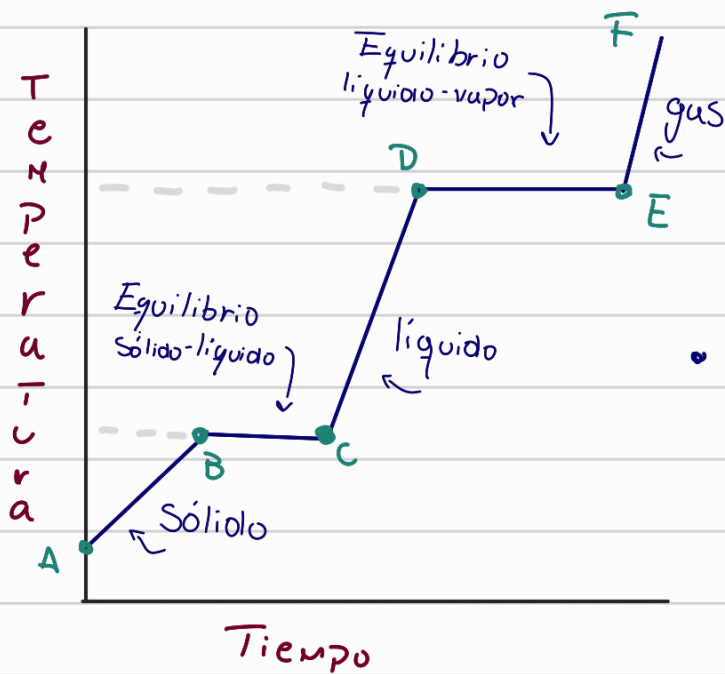 Temperatura
F
Equilibrio
líquido-vapor
gas
D
E
Equilibrio
Sólido-líquido
líquido
B
C
Sólido
A
Tiempo